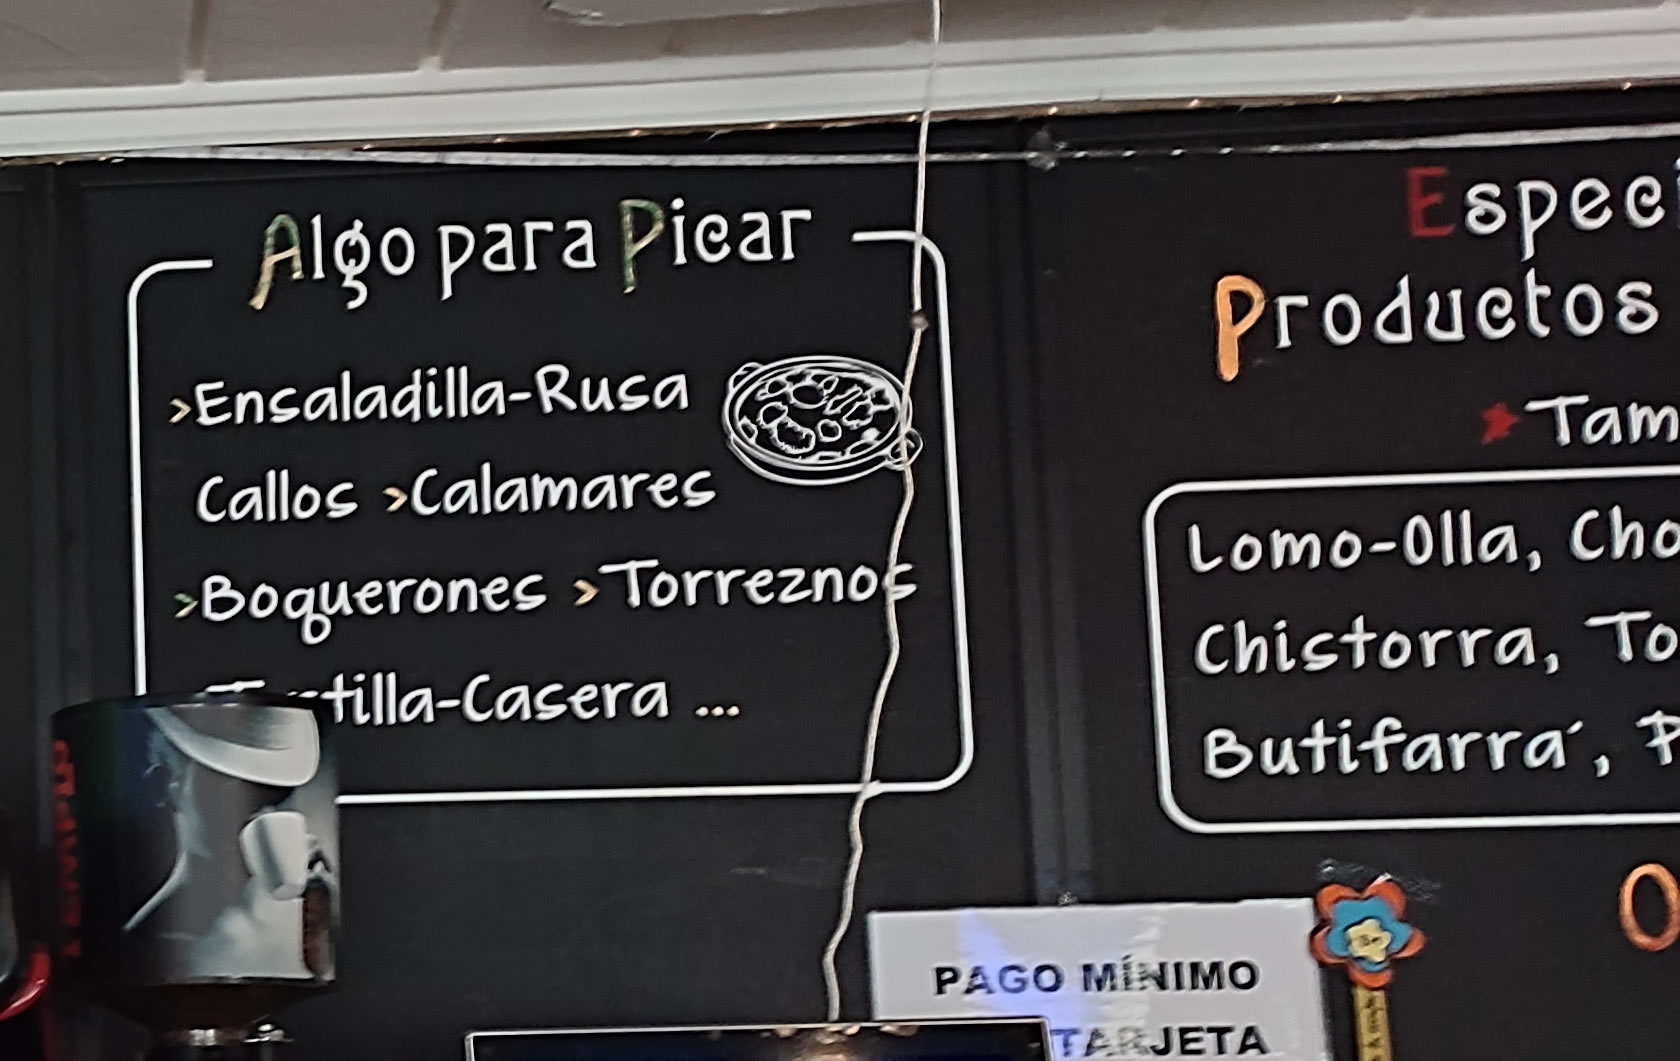 Algo para Picar
>Ensaladilla-Rusa
Callos >Calamares
>Boquerones >Torreznos
Tortilla-Casera ...
Especi
Productos
★Tam
Lomo-Olla, Cho
Chistorra, To
Butifarra´, P
O
PAGO MÍNIMO
TARJETA